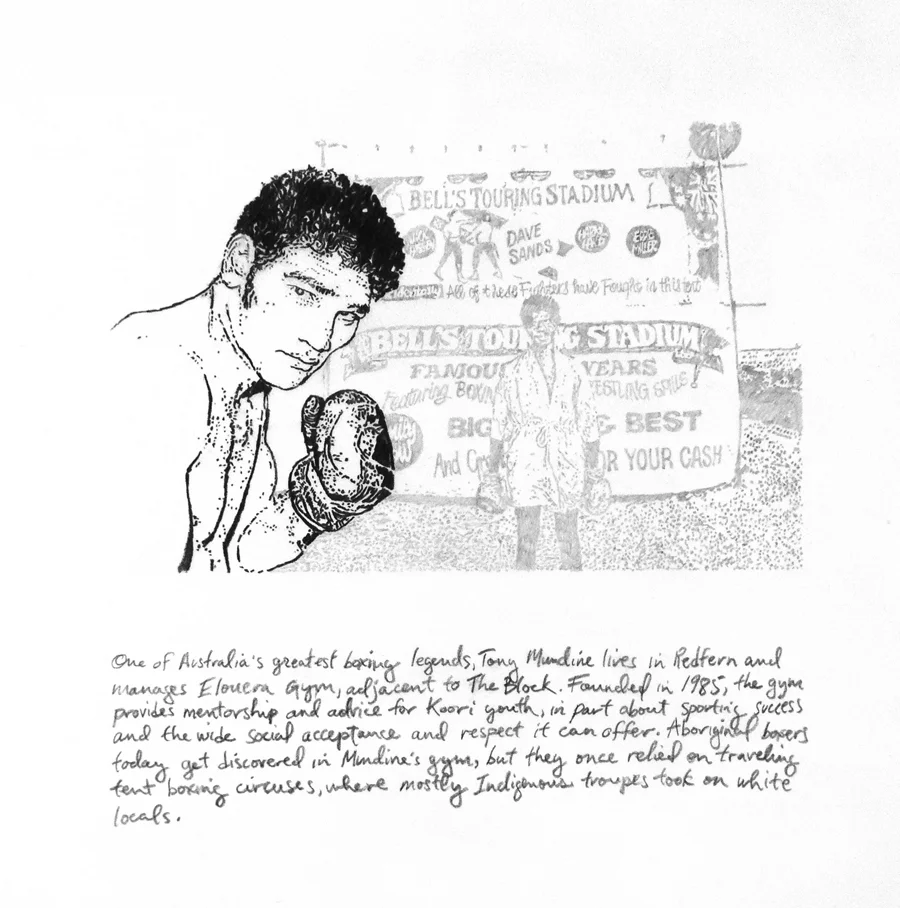 BELL'S TOURING STADIUM
DAVE
SANDS
EDDIE
MILLER
All of these Fighters have Fought in this tent
BELL'S TOURING STADIUM
FAMOUS YEARS
Featuring BOXIN
BIG & BEST
And OR YOUR CASH
One of Australia's greatest boxing legends, Tony Mundine lives in Redfern and
manages Elouera Gym, adjacent to The Block. Founded in 1985, the gym
provides mentorship and advice for Koori youth, in part about sporting success
and the wide social acceptance and respect it can offer. Aboriginal boxers
today get discovered in Mundine's gym, but they once relied on traveling
tent boxing circuses, where mostly Indigenous troupes took on white
locals.